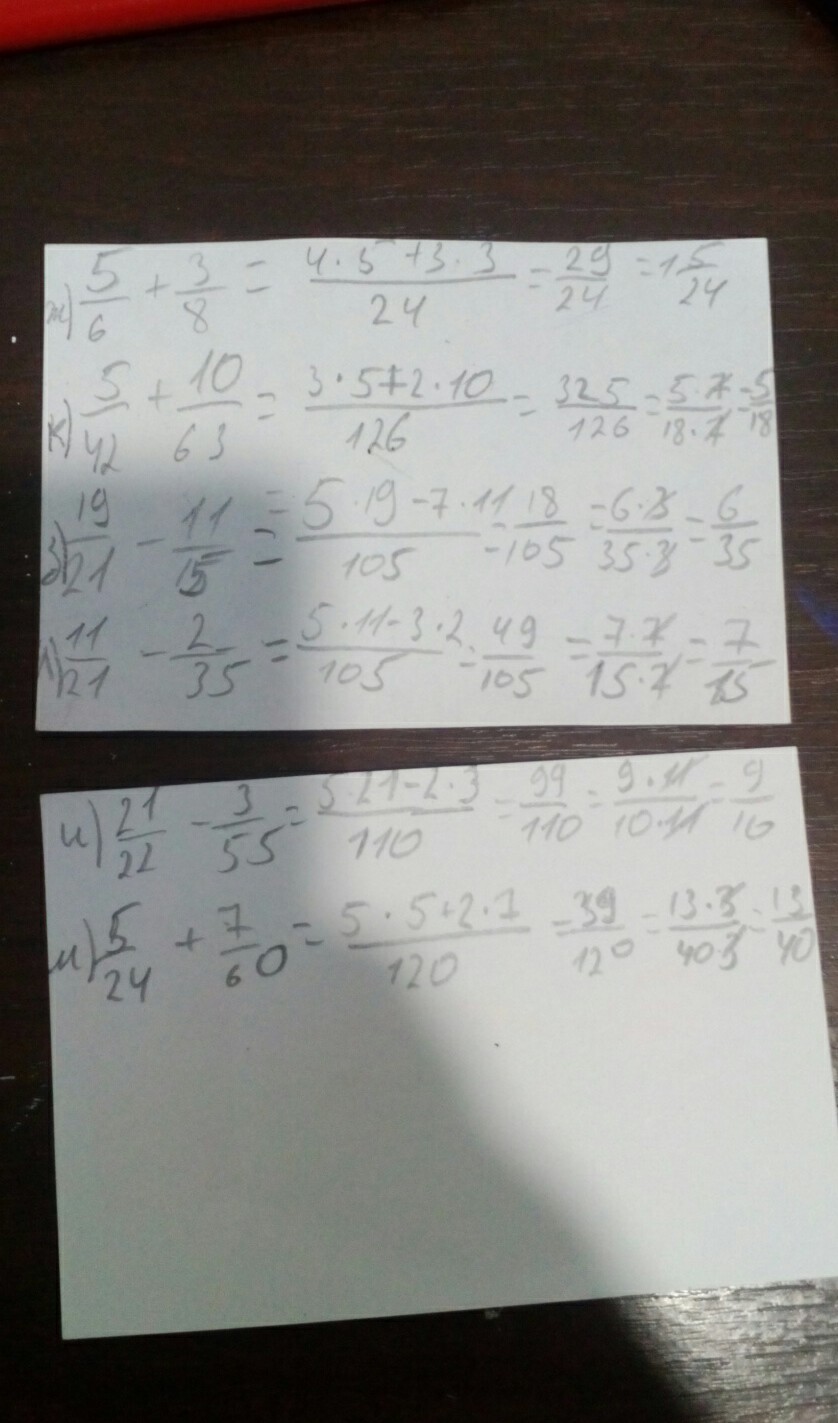 ж) 5/6 + 3/8 = (4·5+3·3)/24 = 29/24 = 1 5/24
к) 5/42 + 10/63 = (3·5+2·10)/126 = 325/126 = (5·7)/(18·7) = 5/18
з) 19/21 - 11/15 = = (5·19-7·11)/105 = 18/105 = (6·3)/(35·3) = 6/35
л) 11/21 - 2/35 = (5·11-3·2)/105 = 49/105 = (7·7)/(15·7) = 7/15
и) 21/22 - 3/55 = (5·21-2·3)/110 = 99/110 = (9·11)/(10·11) = 9/10
м) 5/24 + 7/60 = (5·5+2·7)/120 = 39/120 = (13·3)/(40·3) = 13/40